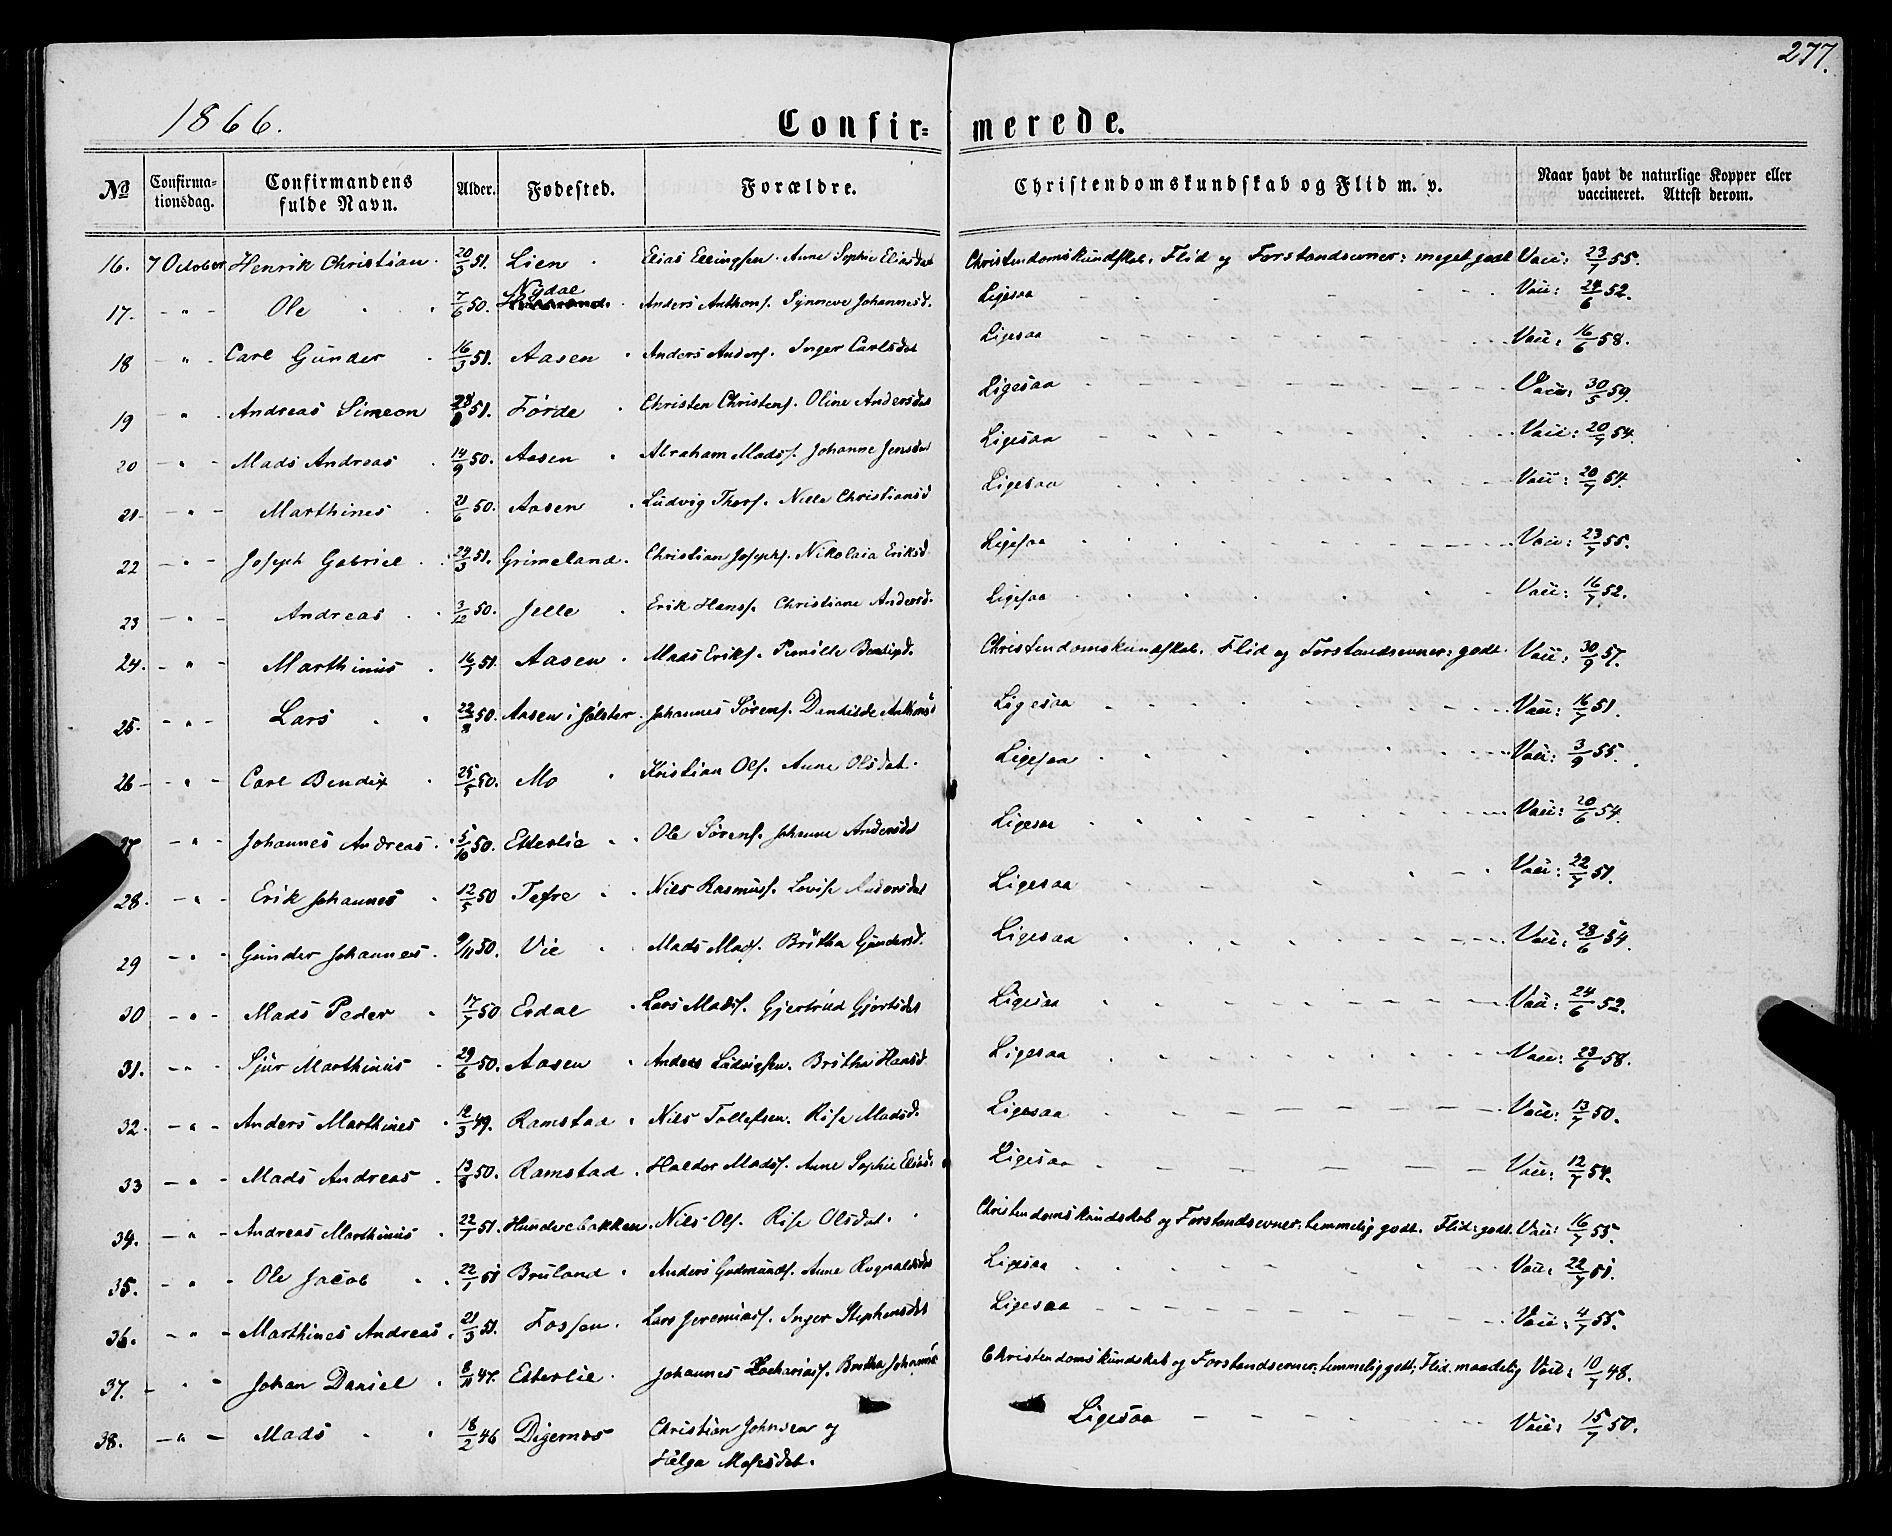 277.
1866.
Confir= merede.
No Confirma-tionsdag. Confirmandens fulde Navn. Alder. Fødested. Forældre. Christendomskundskab og Flid m. v. Naar havt de naturlige Kopper eller vaccineret. Attest derom.
16. 7 October Henrik Christian. 20/3 51. Lien Elias Ellingsen. Anne Sophie Eliasdat Christendomskundskab, Flid og Forstandsevner: meget godt Vacc: 23/7 55.
17. - " - Ole 7/6 50. Nydal Anders Anthons. Synneve Johannesd. Ligesaa Vacc: 24/6 52.
18 - " - Carl Gunder 16/3 51. Aasen Anders Anders. Inger Carlsdat Ligesaa Vacc: 16/6 58.
19 - " - Andreas Simeon 51. Førde Christen Christens. Oline Andersdat Ligesaa Vacc: 30/5 59.
20 - " - Mads Andreas 14/9 50. Aasen Abraham Mads. Johanne Jensdat Ligesaa Vacc: 20/7 54.
21- - " - Marthines 21/6 50. Aasen Ludvig Thors. Nille Christiansd Ligesaa Vacc: 20/7 54.
22 - " - Joseph Gabriel 29/3 51. Grimeland. Christian Josephs. Nikolaia Eriksd. Ligesaa Vacc: 23/7 55.
23 - " - Andreas 3/12 50. Jelle Erik Hans. Christiane Andersd. Ligesaa Vacc: 16/7 52.
24. - " - Marthinus 16/7 51. Aasen Mads Eriks. Pernille Christendomskundskab, Flid og Forstandsevner: godt. Vacc: 30/9 57.
25. - " - Lars 22/8 50. Aasen i Jølster. Johannes Sørens. Danhilde Anthonsd Ligesaa Vacc: 16/7 51.
26 - " - Carl Bendix 25/5 50. Mo Kristian Ols. Anne Olsdat. Ligesaa Vacc: 3/9 55.
27 - " - Johannes Andreas. 5/10 50. Etterlie Ole Sørens. Johanne Andersdat Ligesaa Vacc: 20/6 54.
28. - " - Erik Johannes 12/5 50 Tefre Nils Rasmus. Lovise Andersdat Ligesaa Vacc: 22/7 51.
29 - " - Gunder Johannes. 9/11 50. Vie Mads Mads. Britha Gundersd. Ligesaa Vacc: 28/6 54.
30 - " - Mads Peder 17/7 50 Erdal Lars Mads. Gjertrud Gjertsdat Ligesaa Vacc: 24/6 52.
31. - " - Sjur Marthinus 29/6 50. Aasen Anders Ludvigsen. Britha Hansd. Ligesaa Vacc: 23/6 58.
32. - " - Anders Marthines 12/3 49. Ramstad Nils Tollefsen. Rise Madsd. Ligesaa Vacc: 13/7 50.
33 - " - Mads Andreas 13/8 50. Ramstad Haldor Mads. Anne Sophie Eliasd. Ligesaa Vacc: 12/7 54.
34. - " - Andreas Marthinus 22/7 51. Hundvebakken. Nils Ols. Rise Olsdat. Christendomskundskab og Forstandsevner: temmelig godt. Flid: godt. Vacc: 16/7 55.
35. - " - Ole Jacob 22/1 51 Bruland Anders Gudmunds. Anne Rognaldsdat Ligesaa Vacc: 22/7 51.
36. - " - Marthines Andreas. 21/3 51. Fossen. Lars Jeremias. Inger Stephensdat Ligesaa Vacc: 4/7 55.
37. - " - Johan Daniel 8/11 47. Etterlie. Johannes Zacharias. Britha Johannesd. Christendomskundskab og Forstandsevner: temmelig godt; Flid: maadelig Vacc: 10/7 48.
38. - " - Mads 18/2 46 Digernæs Christian Johnsen og Ligesaa Vacc: 15/7 50.
Helga Madsdat.